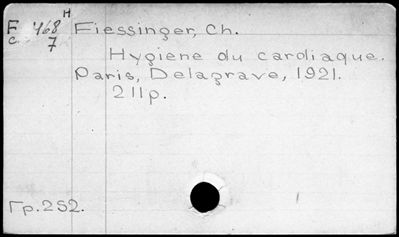 H
F 468 Fiessinger, Ch.
c. 7
Hygiene du cardiaque.
Paris, Delagrave, 1921.
211p.
Гр.252.